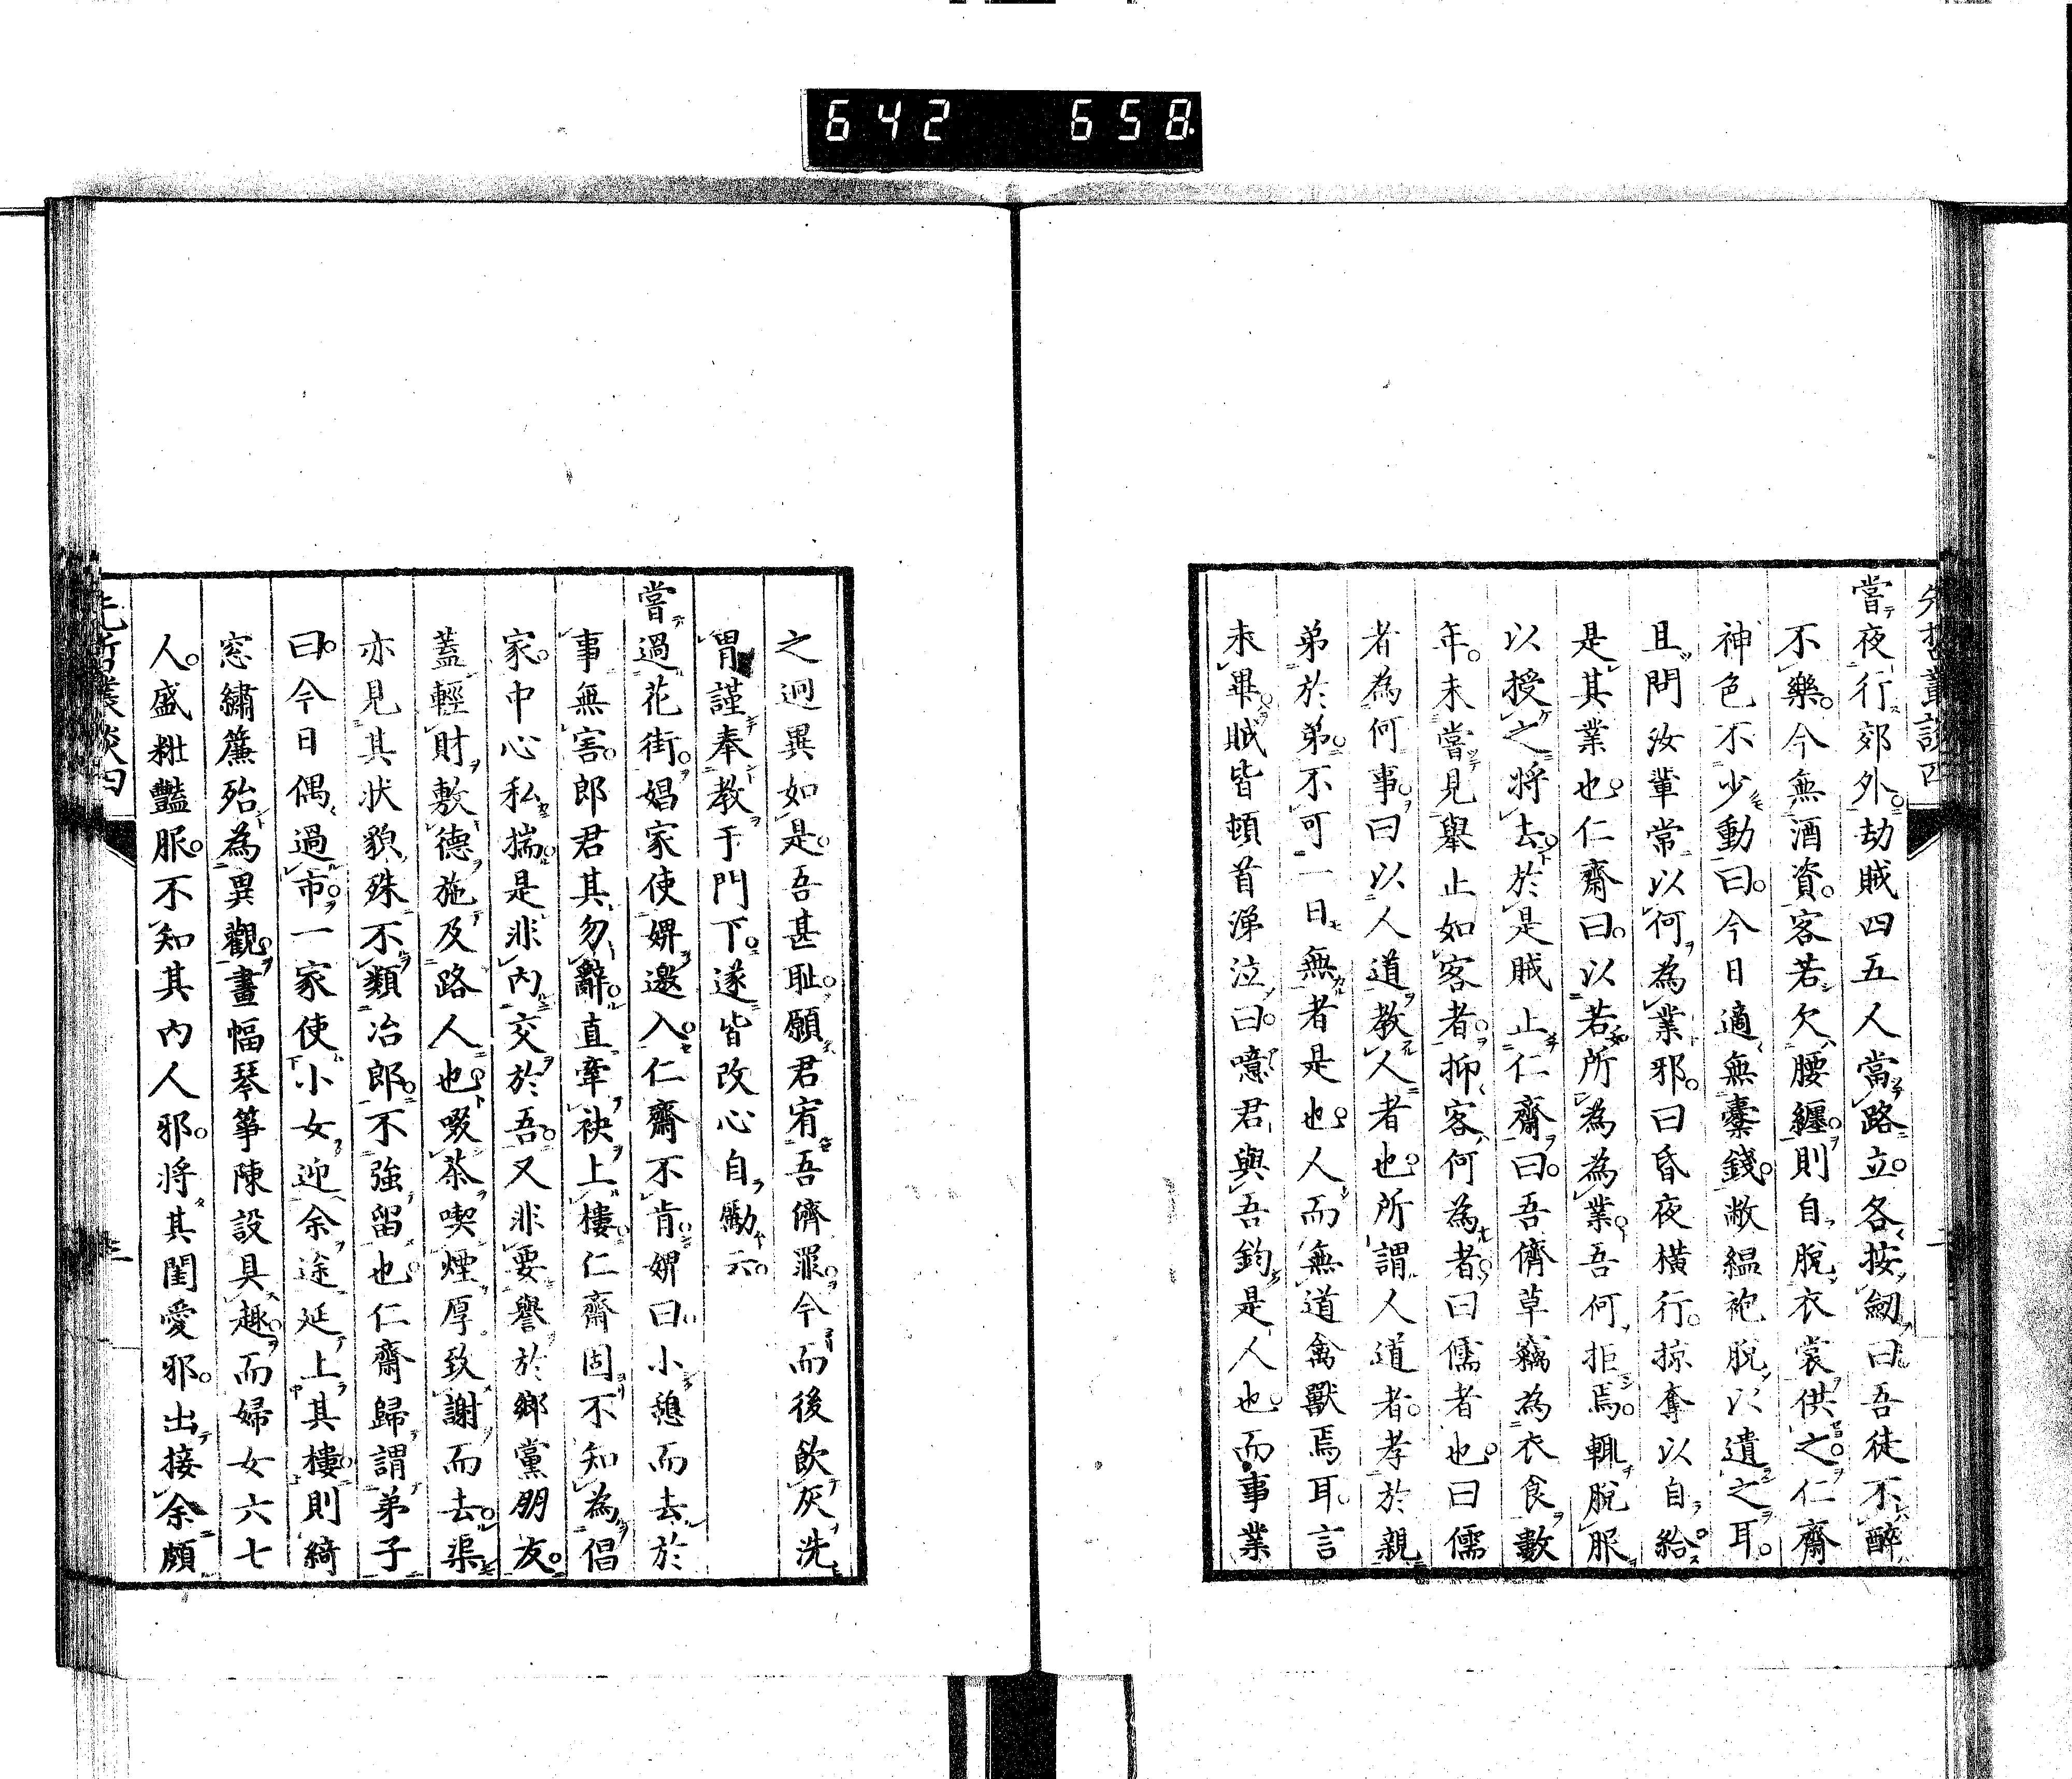 642 658
先哲叢談四
嘗夜行郊外劫賊四五人當路立各按劒曰吾徒不醉
不樂今無酒資客若欠腰纏則自脫衣裳供之仁齋
神色不少動曰今日適無橐錢敝縕袍脫以遺之耳
且問汝輩常以何為業邪曰昏夜橫行掠奪以自給
是其業也仁齋曰以若所為為業吾何拒焉輒脫服
以授之將去於是賊止仁齋曰吾儕草竊為衣食數
年未嘗見舉止如客者抑客何為者曰儒者也曰儒
者為何事曰以人道教人者也所謂人道者孝於親
弟於弟不可一日無者是也人而無道禽獸焉耳言
未畢賊皆頓首涕泣曰噫君與吾鈞是人也而事業
之迥異如是吾甚恥願君宥吾儕罪今而後飲灰洗
胃謹奉教于門下遂皆改心自勵云
嘗過花街娼家使婢邀入仁齋不肯婢曰小憩而去於
事無害郎君其勿辭直牽袂上樓仁齋固不知為倡
家中心私揣是非內交於吾又非要譽於鄉黨朋友
蓋輕財敷德施及路人也啜茶喫煙厚致謝而去渠
亦見其狀貌殊不類冶郎不強留也仁齋歸謂弟子
曰今日偶過市一家使小女迎余途延上其樓則綺
窓繡簾殆為異觀畫幅琴箏陳設具趣而婦女六七
人盛粧豔服不知其內人邪將其閨愛邪出接余頗
先哲叢談四